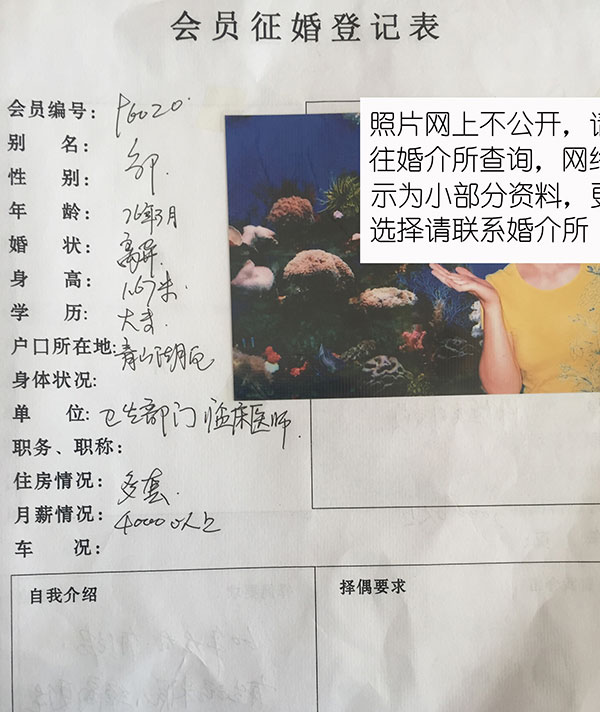 会员征婚登记表
会员编号:
别 名:
性 别:
年 龄: 76年3月
婚 状: 离异.
身 高: 1.67米
学 历: 大专.
户口所在地: 青山湖区
身体状况:
单 位: 卫生部门临床医师.
职务、职称:
住房情况: 多套.
月薪情况: 4000以上
车 况:
照片网上不公开，
往婚介所查询，网
示为小部分资料，
选择请联系婚介所
自我介绍
择偶要求